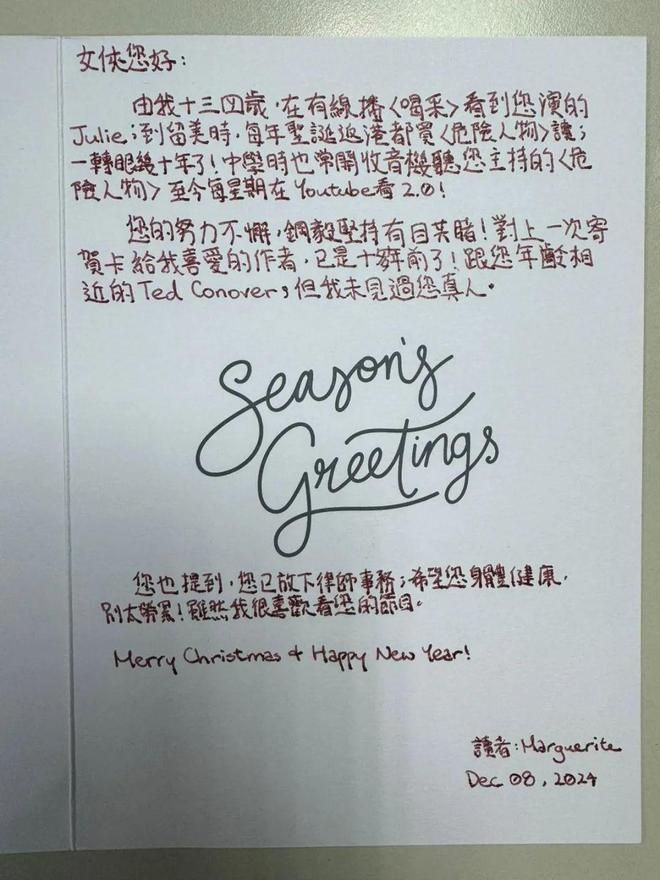 女俠您好：
由我十三四歲，在有線播〈喝采〉看到您演的
Julie；到留美時，每年聖誕返港都買〈危險人物〉讀；
一轉眼幾十年了！中學時也常開收音機聽您主持的〈危
險人物〉至今每星期在Youtube看2.0！
您的努力不懈，鋼毅堅持有目共睹！對上一次寄
賀卡給我喜愛的作者，已是十多年前了！跟您年齡相
近的Ted Conover，但我未見過您真人。
Season's
Greetings
您也提到，您已放下律師事務；希望您身體健康，
別太勞累！雖然我很喜歡看您的節目。
Merry Christmas & Happy New Year!
讀者：Marguerite
Dec 08, 2024